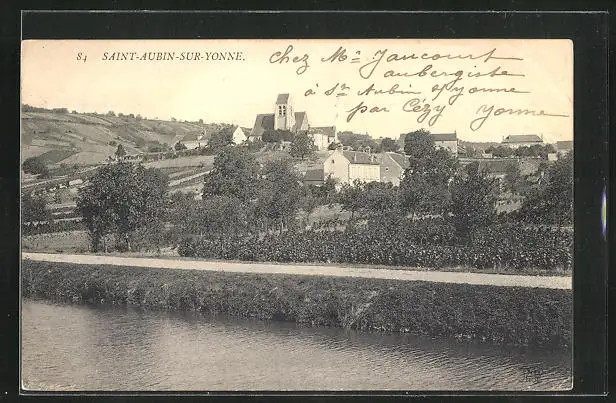 84 SAINT-AUBIN-SUR-YONNE.
Chez Mr Jaucourt
aubergiste
à St Aubin s/Yonne
par Cézy Yonne